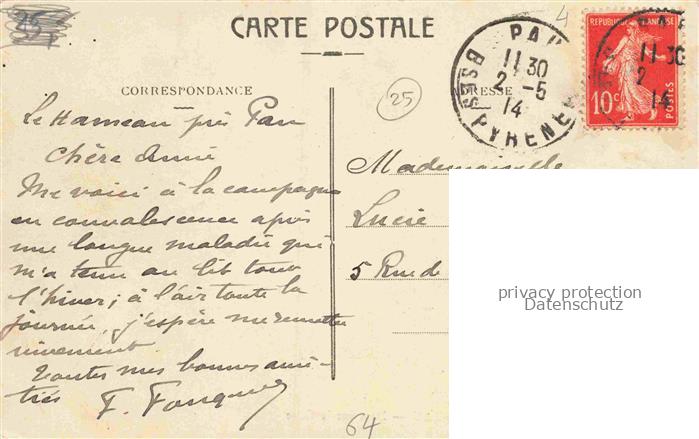 25
4
CARTE POSTALE
CORRESPONDANCE
25
ADRESSE
PAU
11 30
2 - 5
14
BSES PYRENEES
REPUBLIQUE FRANÇAISE
10c
POSTES
11 30
2
14
Le Hameau près Pau
Chère Amie
Me voici à la campagne
en convalescence après
une longue maladie qui
m'a tenu au lit tout
l'hiver; à l'air toute la
journée, j'espère me remettre
vivement
Toutes mes bonnes ami-
tiés
F.
Mademoiselle
Lucie
5 Rue de
64
privacy protection
Datenschutz